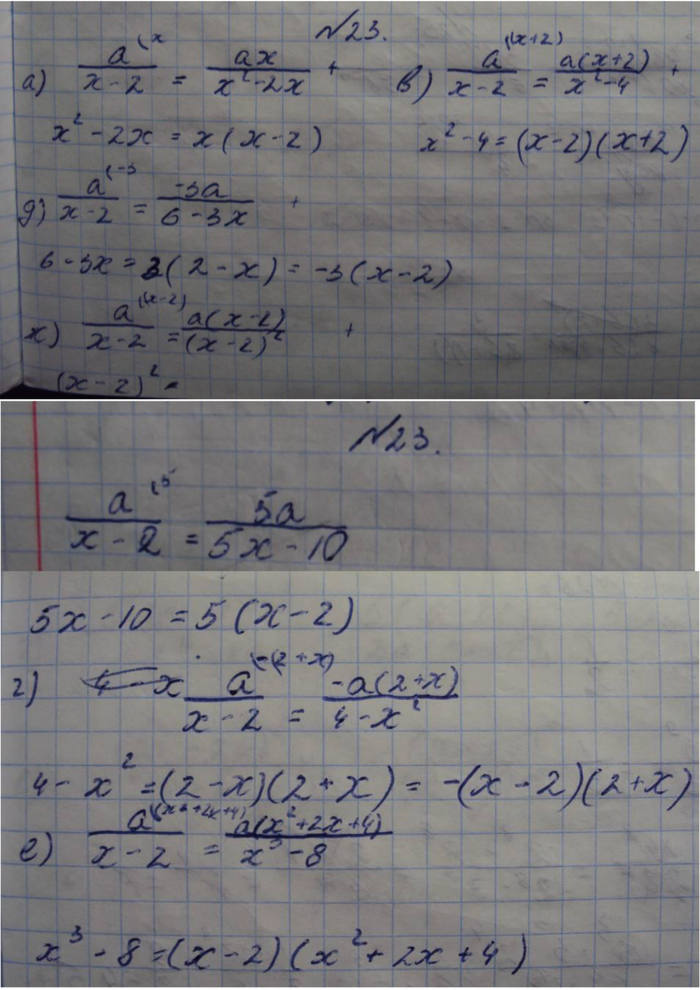 №23.
а) a^(x / x-2 = ax / x²-2x +
в) a^(x+2) / x-2 = a(x+2) / x²-4 +
x² - 2x = x(x-2)
x² - 4 = (x-2)(x+2)
д) a^(-3 / x-2 = -3a / 6-3x +
6 - 3x = 3(2-x) = -3(x-2)
ж) a^(x-2) / x-2 = a(x-2) / (x-2)² +
(x-2)² =
№23.
a^(5 / x-2 = 5a / 5x-10
5x-10 = 5(x-2)
г) a^(-(2+x) / x-2 = -a(2+x) / 4-x²
4 - x² = (2-x)(2+x) = -(x-2)(2+x)
е) a^(x²+2x+4) / x-2 = a(x²+2x+4) / x³-8
x³ - 8 = (x-2)(x²+2x+4)